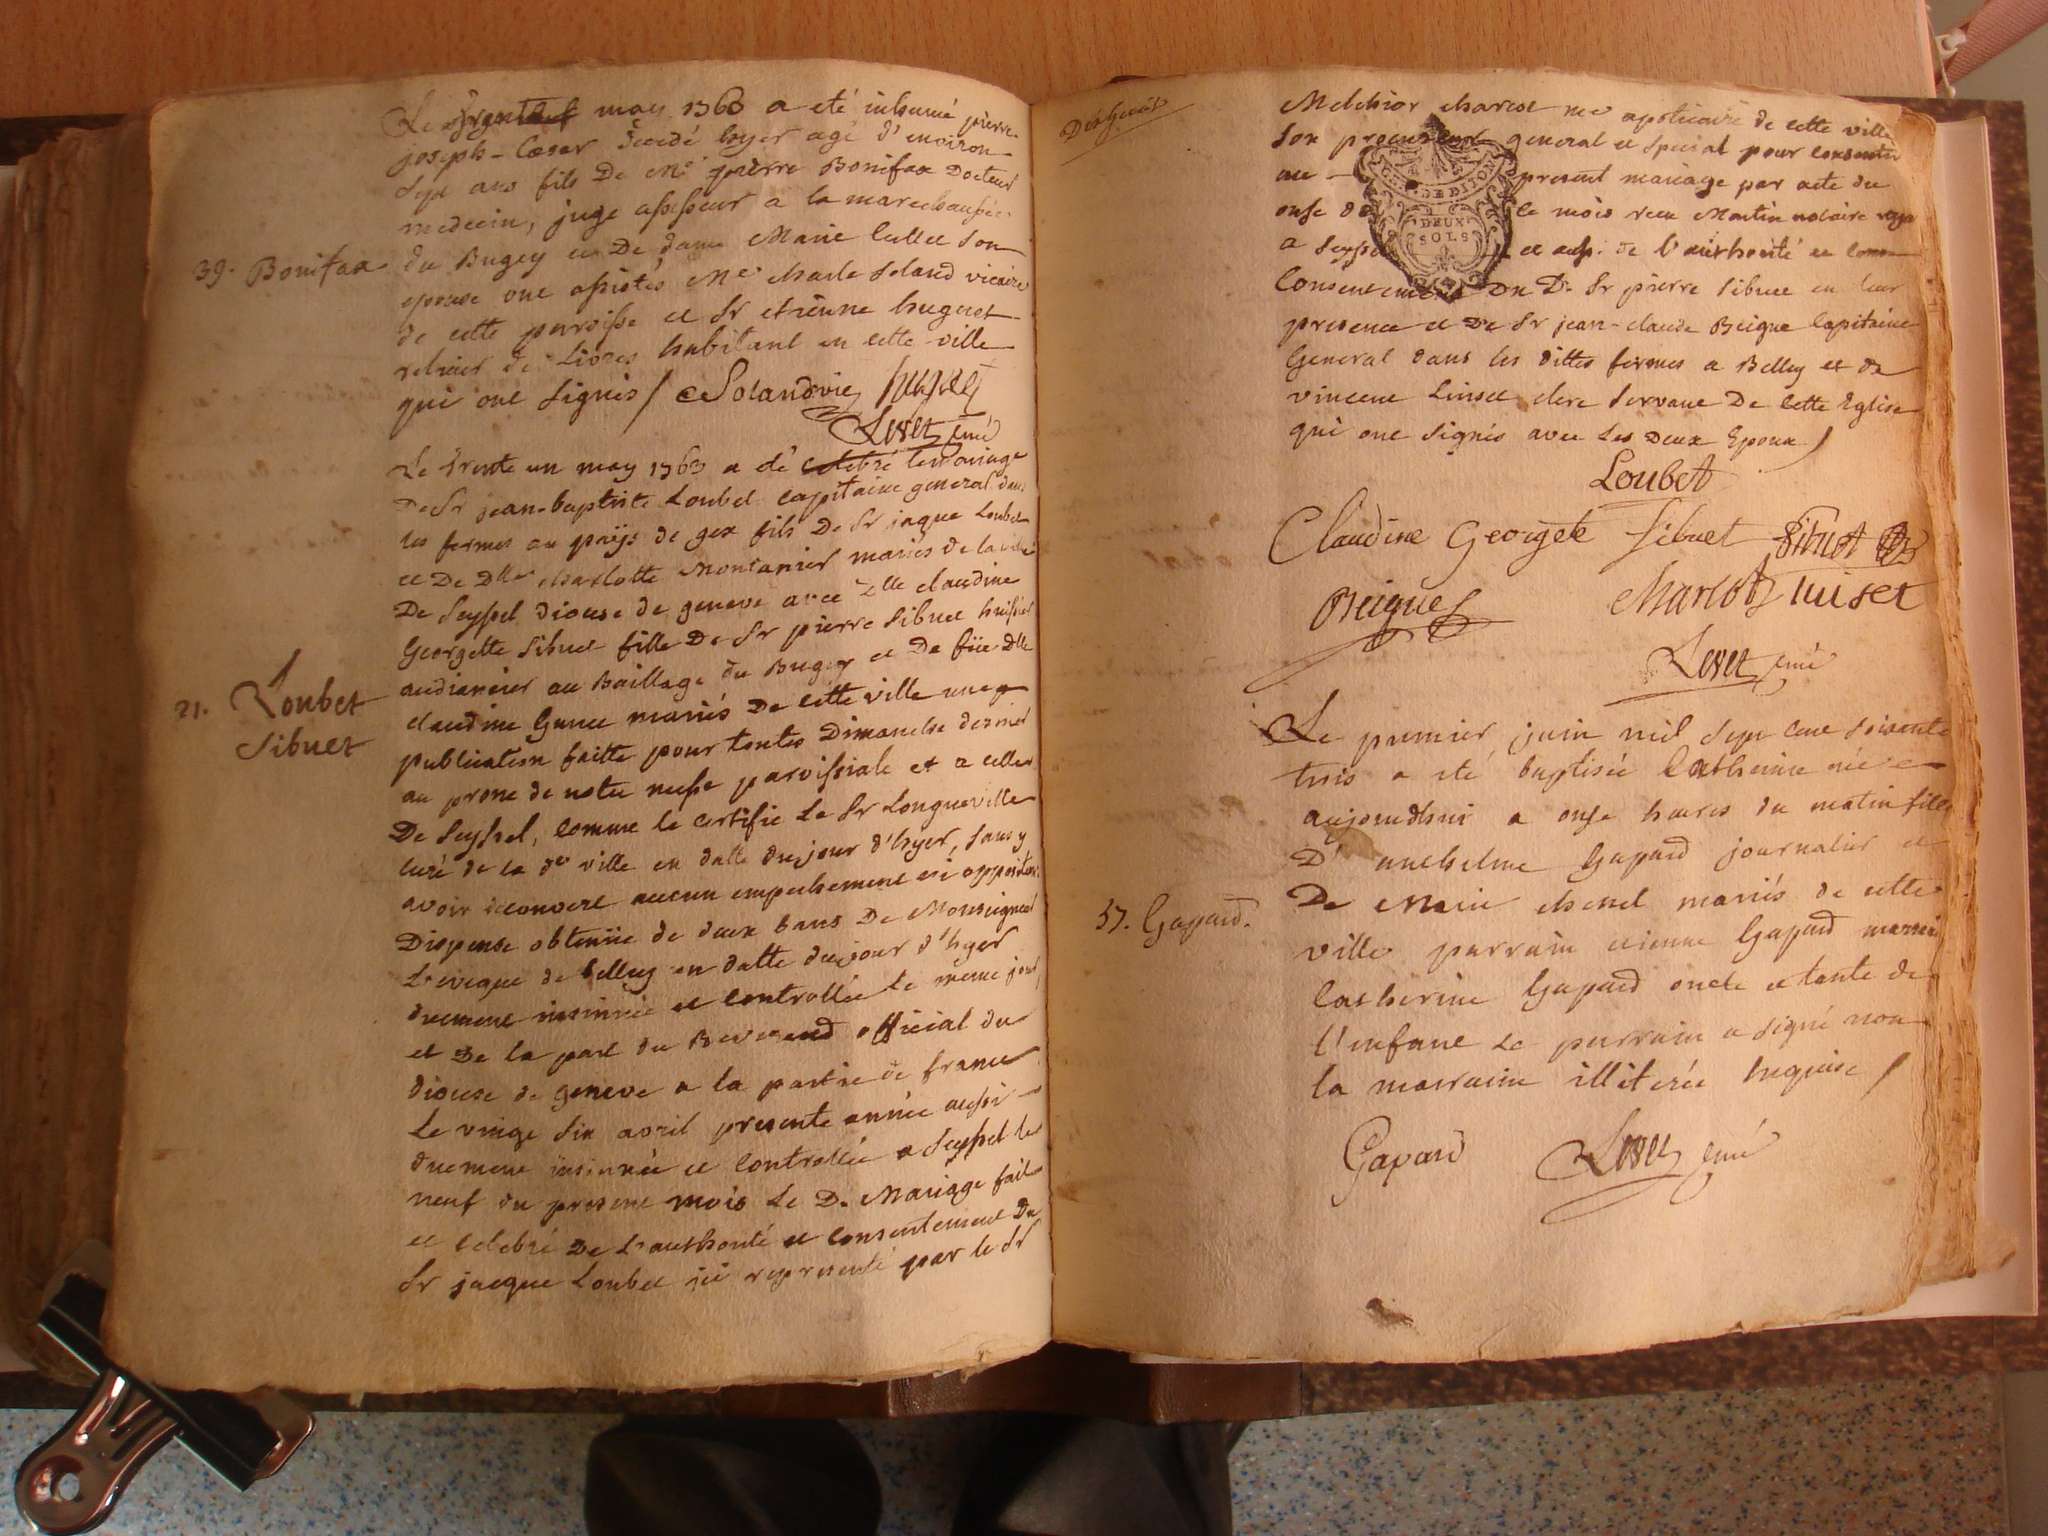 39. Bonifax
Le may 1763 a eté inhumé pierre
joseph-Cæsar décédé hyer agé d'environ
sept ans fils De Mr pierre Bonifax Docteur
medecin, juge assesseur a la marechaussée
du Bugey et De dame Marie son
epouse ont assistés Me charle Soland vicaire
de cette paroisse et Sr etienne huguet
relieur de Livres habitant en cette ville
qui ont Signés / Soland vic huguet
Levet curé
21. Loubet
Sibuet
Le trente un may 1763 a eté celebré le mariage
De Sr jean-baptiste Loubet capitaine general dans
les fermes au païs de gex fils De Sr jaque Loubet
et De Dlle charlotte Montanier mariés de la ville
De Seyssel diocese de geneve avec Dlle claudine
Georgette Sibuet fille De Sr pierre Sibuet huissier
audiancier au Baillage du Bugey et De füe Dlle
claudine mariés De cette ville une
publication faitte pour toutes Dimanche dernier
au prone de notre messe paroissiale et a celle
De Seyssel, comme le certifie Le Sr Longueville
curé de la de ville en datte du jour d'hyer, sans y
avoir découvert aucun empechement ni opposition
Dispense obtenüe de deux bans De Monseigneur
L'eveque de belley en datte du jour d'hyer
duement insinuée et controllée le meme jour,
et De la part du Reverend official du
diocese de geneve a la partie de france
Le vingt six avril presente année aussi
duement insinuée et controllée a Seyssel le
neuf du present mois Le D. Mariage fait
et celebré De L'authorité et consentement Du
Sr jacque Loubet ici representé par le Sr
Melchior charcot me apoticaire de cette ville
Son procureur general et special pour consentir
au present mariage par acte du
onse de ce mois receu Martin notaire
a Seyssel et de l'authorité et
Consentement Du D. Sr pierre Sibuet en leur
presence et De Sr jean-claude Beigue Capitaine
General dans les dittes fermes a Belley et de
vincent clerc Servant De cette Eglise
qui ont signés avec Les Deux Epoux /
DE DIJON
DEUX
SOLS
Loubet
Claudine Georgete Sibuet Sibuet
Beigue Charcot
Levet curé
57. Gapard.
Le premier juin mil sept cent soixante
trois a eté baptisée Catherine née
aujourdhui a onse heures du matin fille
D'anthelme Gapard journalier et
De Marie mariés de cette
ville parrain etienne Gapard marraine
Catherine Gapard oncle et tante de
l'enfant Le parrain a signé non
la marraine illiterée Inquise /
Gapard Levet curé